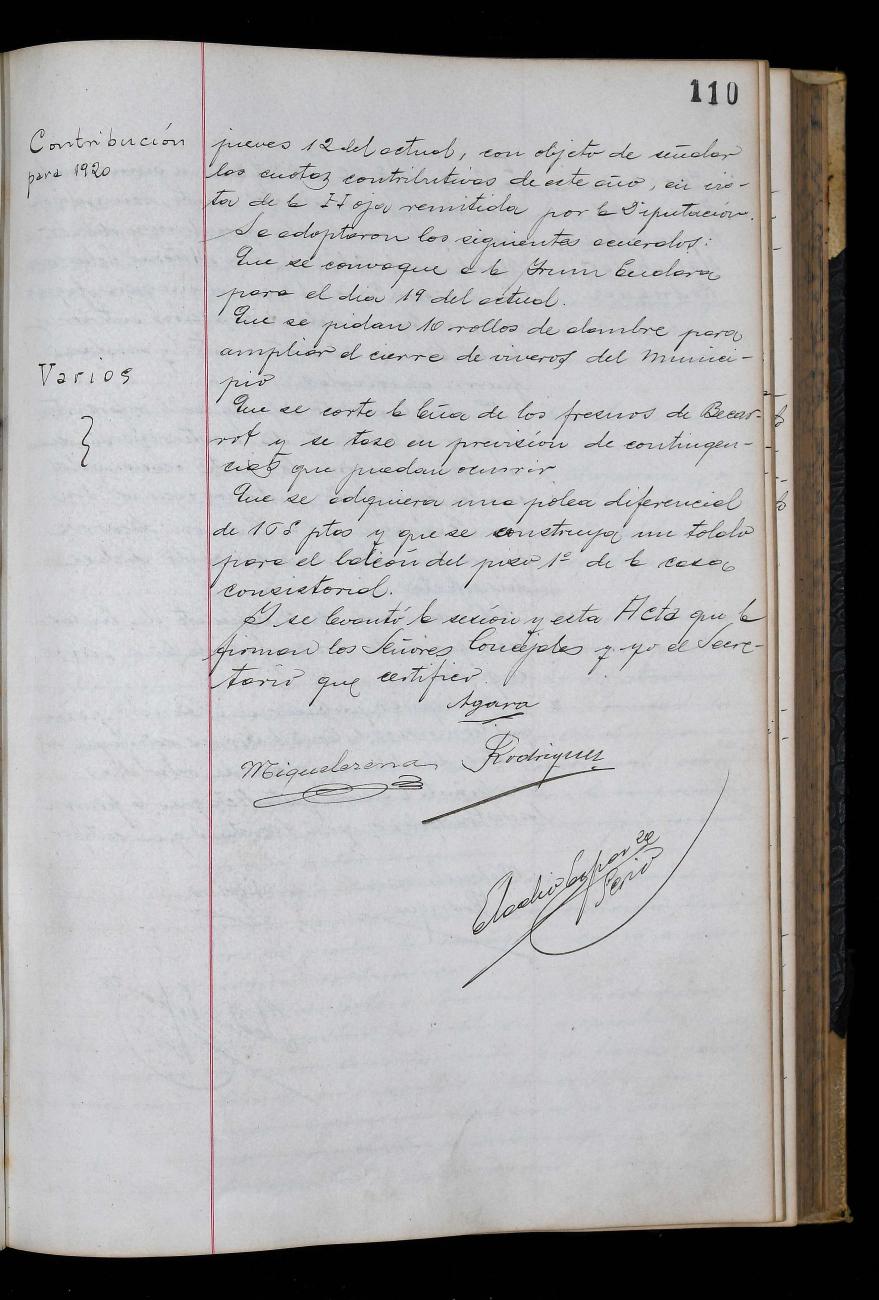 110
Contribución
para 1920
jueves 12 del actual, con objeto de señalar
las cuotas contributivas de este año, en vis-
ta de la Hoja remitida por la Diputación.
Se adoptaron los siguientes acuerdos:
Que se convoque a la Junta
para el dia 19 del actual.
Varios
Que se pidan 10 rollos de alambre para
ampliar el cierre de viveros del munici-
pio
Que se corte la leña de los fresnos de Becar-
rot y se tase en previsión de contingen-
cias que puedan ocurrir
Que se adquiera una polea diferencial
de 168 ptas y que se construya un toldo
para el balcón del piso 1º de la casa
consistorial.
Y se levantó la sesión y esta Acta que la
firman los Señores Concejales y yo el Secre-
tario que certifico.
Agara
Miquelerena Rodriguez
Eladio Esparza
Srio